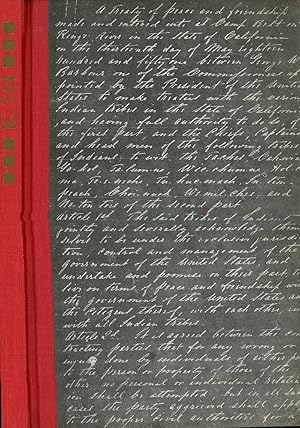 A Treaty of Peace and friendship
made and entered into at Camp Belt on
Kings River in the State of California
on the thirteenth day of May eighteen
hundred and fifty one between George W
Barbour one of the Commissioners ap
pointed by the President of the United
States to make treaties with the various
Indian tribes in the State of California
and having full authority to
the first part and the Chiefs, Captains
and head men of the following tribes
of Indians to wit the
of the second part
article 1st The said tribes of Indians
jointly and severally acknowledge them
selves to be under the exclusive jurisdic
tion control and management of the
government of the United States and
undertake and promise on their part to
live on terms of peace and friendship with
the government of the United States and
the citizens thereof, with each other, and
with all Indian tribes
Article 2d It is agreed between the con
tracting parties that for any wrong or
injury done by individuals of either party
to the person or property of those of the
other no personal or individual retalia
tion shall be attempted but in all such
cases the party aggrieved shall apply
to the proper civil authorities for a